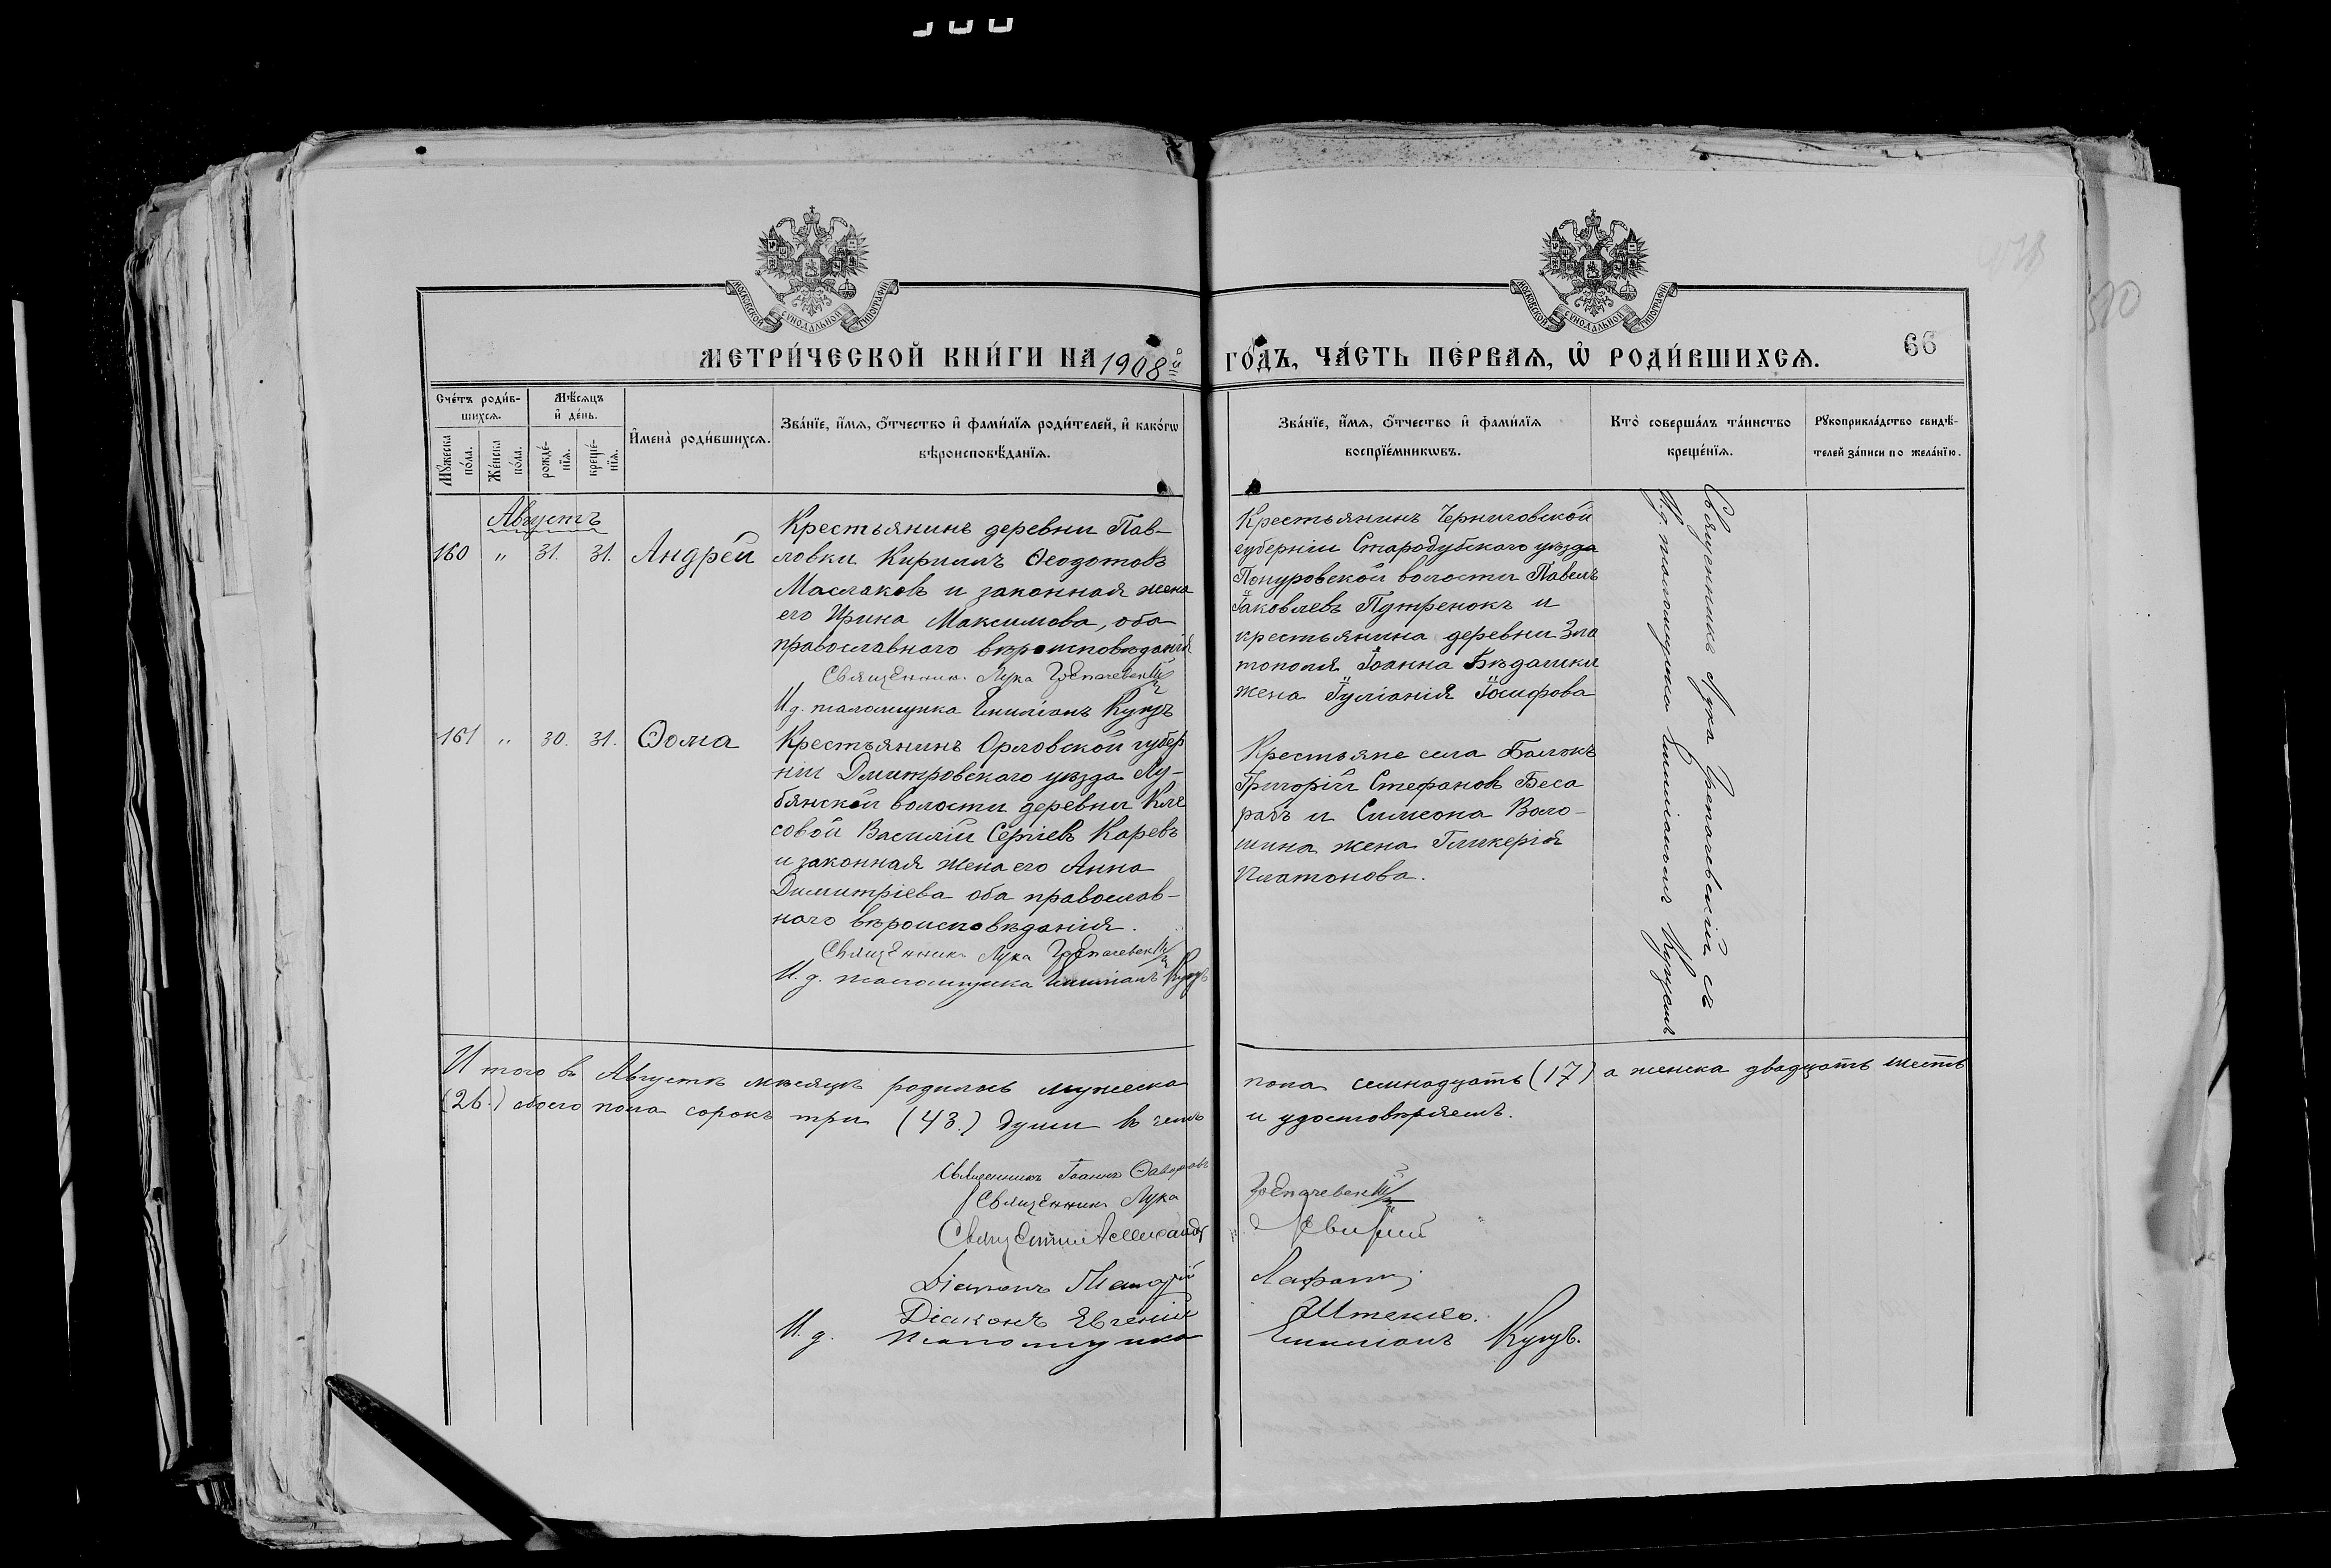 МОСКОВСКОЙ СѴНОДАЛЬНОЙ ТИПОГРАФІИ
МОСКОВСКОЙ СѴНОДАЛЬНОЙ ТИПОГРАФІИ
МЕТРИ́ЧЕСКОЙ КНИ́ГИ НА 1908й
ГО́ДЪ, ЧА́СТЬ ПЕ́РВАѦ, Ѡ҆ РОДИ́ВШИХСѦ.
66
Сче́тъ роди́в-
шихсѧ.
Мꙋ́жеска по́ла.
Же́нска по́ла.
Мѣ́сѧцъ
и҆ де́нь.
рожде́-нїѧ.
креще́-нїѧ.
И҆мена̀ роди́вшихсѧ.
Зва́нїе, и҆́мѧ, ѻ҆́тчество и҆ фами́лїѧ роди́телей, и҆ како́гѡ
вѣроисповѣ́данїѧ.
Зва́нїе, и҆́мѧ, ѻ҆́тчество и҆ фами́лїѧ
воспрїе́мникѡвъ.
Кто̀ соверша́лъ та́инство
креще́нїѧ.
Рꙋкоприкла́дство свидѣ́-
телей за́писи по жела́нїю.
Августъ
160 " 31. 31. Андрей
Крестьянинъ деревни Пав-
ловки Кириллъ Ѳеодотовъ
Маслаковъ и законная жена
его Ирина Максимова, оба
православнаго вѣроисповѣданія
Священникъ Лука
И. д. псаломщика Емиліанъ Куцъ
Крестьянинъ Черниговской
губерніи Стародубскаго уѣзда
Понуровской волости Павелъ
Іаковлевъ Путренокъ и
крестьянина деревни Зла
тополя Іоанна Бѣдашки
жена Іуліанія Іосифова
161 " 30. 31. Ѳома
Крестьянинъ Орловской губер
ніи Дмитровскаго уѣзда Лу-
бянской волости деревни Кле
совой Василій Сергіевъ Каревъ
и законная жена его Анна
Димитріева оба православ-
наго вѣроисповѣданія.
Священникъ Лука
И. д. псаломщика Емиліанъ Куцъ
Крестьяне села Балокъ
Григорій Стефановъ Беса
рабъ и Симеона Воло-
шина жена Гликерія
Платонова.
Священникъ Лука съ
И. д. псаломщика Емиліаномъ Куцемъ
Итого въ Августѣ мѣсяцѣ родилось мужеска
пола семнадцать (17) а женска двадцать шесть
(26.) обоего пола сорокъ три (43.) души въ чемъ
и удостовѣряемъ.
Священникъ Іоаннъ
Священникъ Лука
Священникъ Александръ
Діаконъ
Діаконъ Евгеній
И. д. псаломщика Емиліанъ Куцъ.